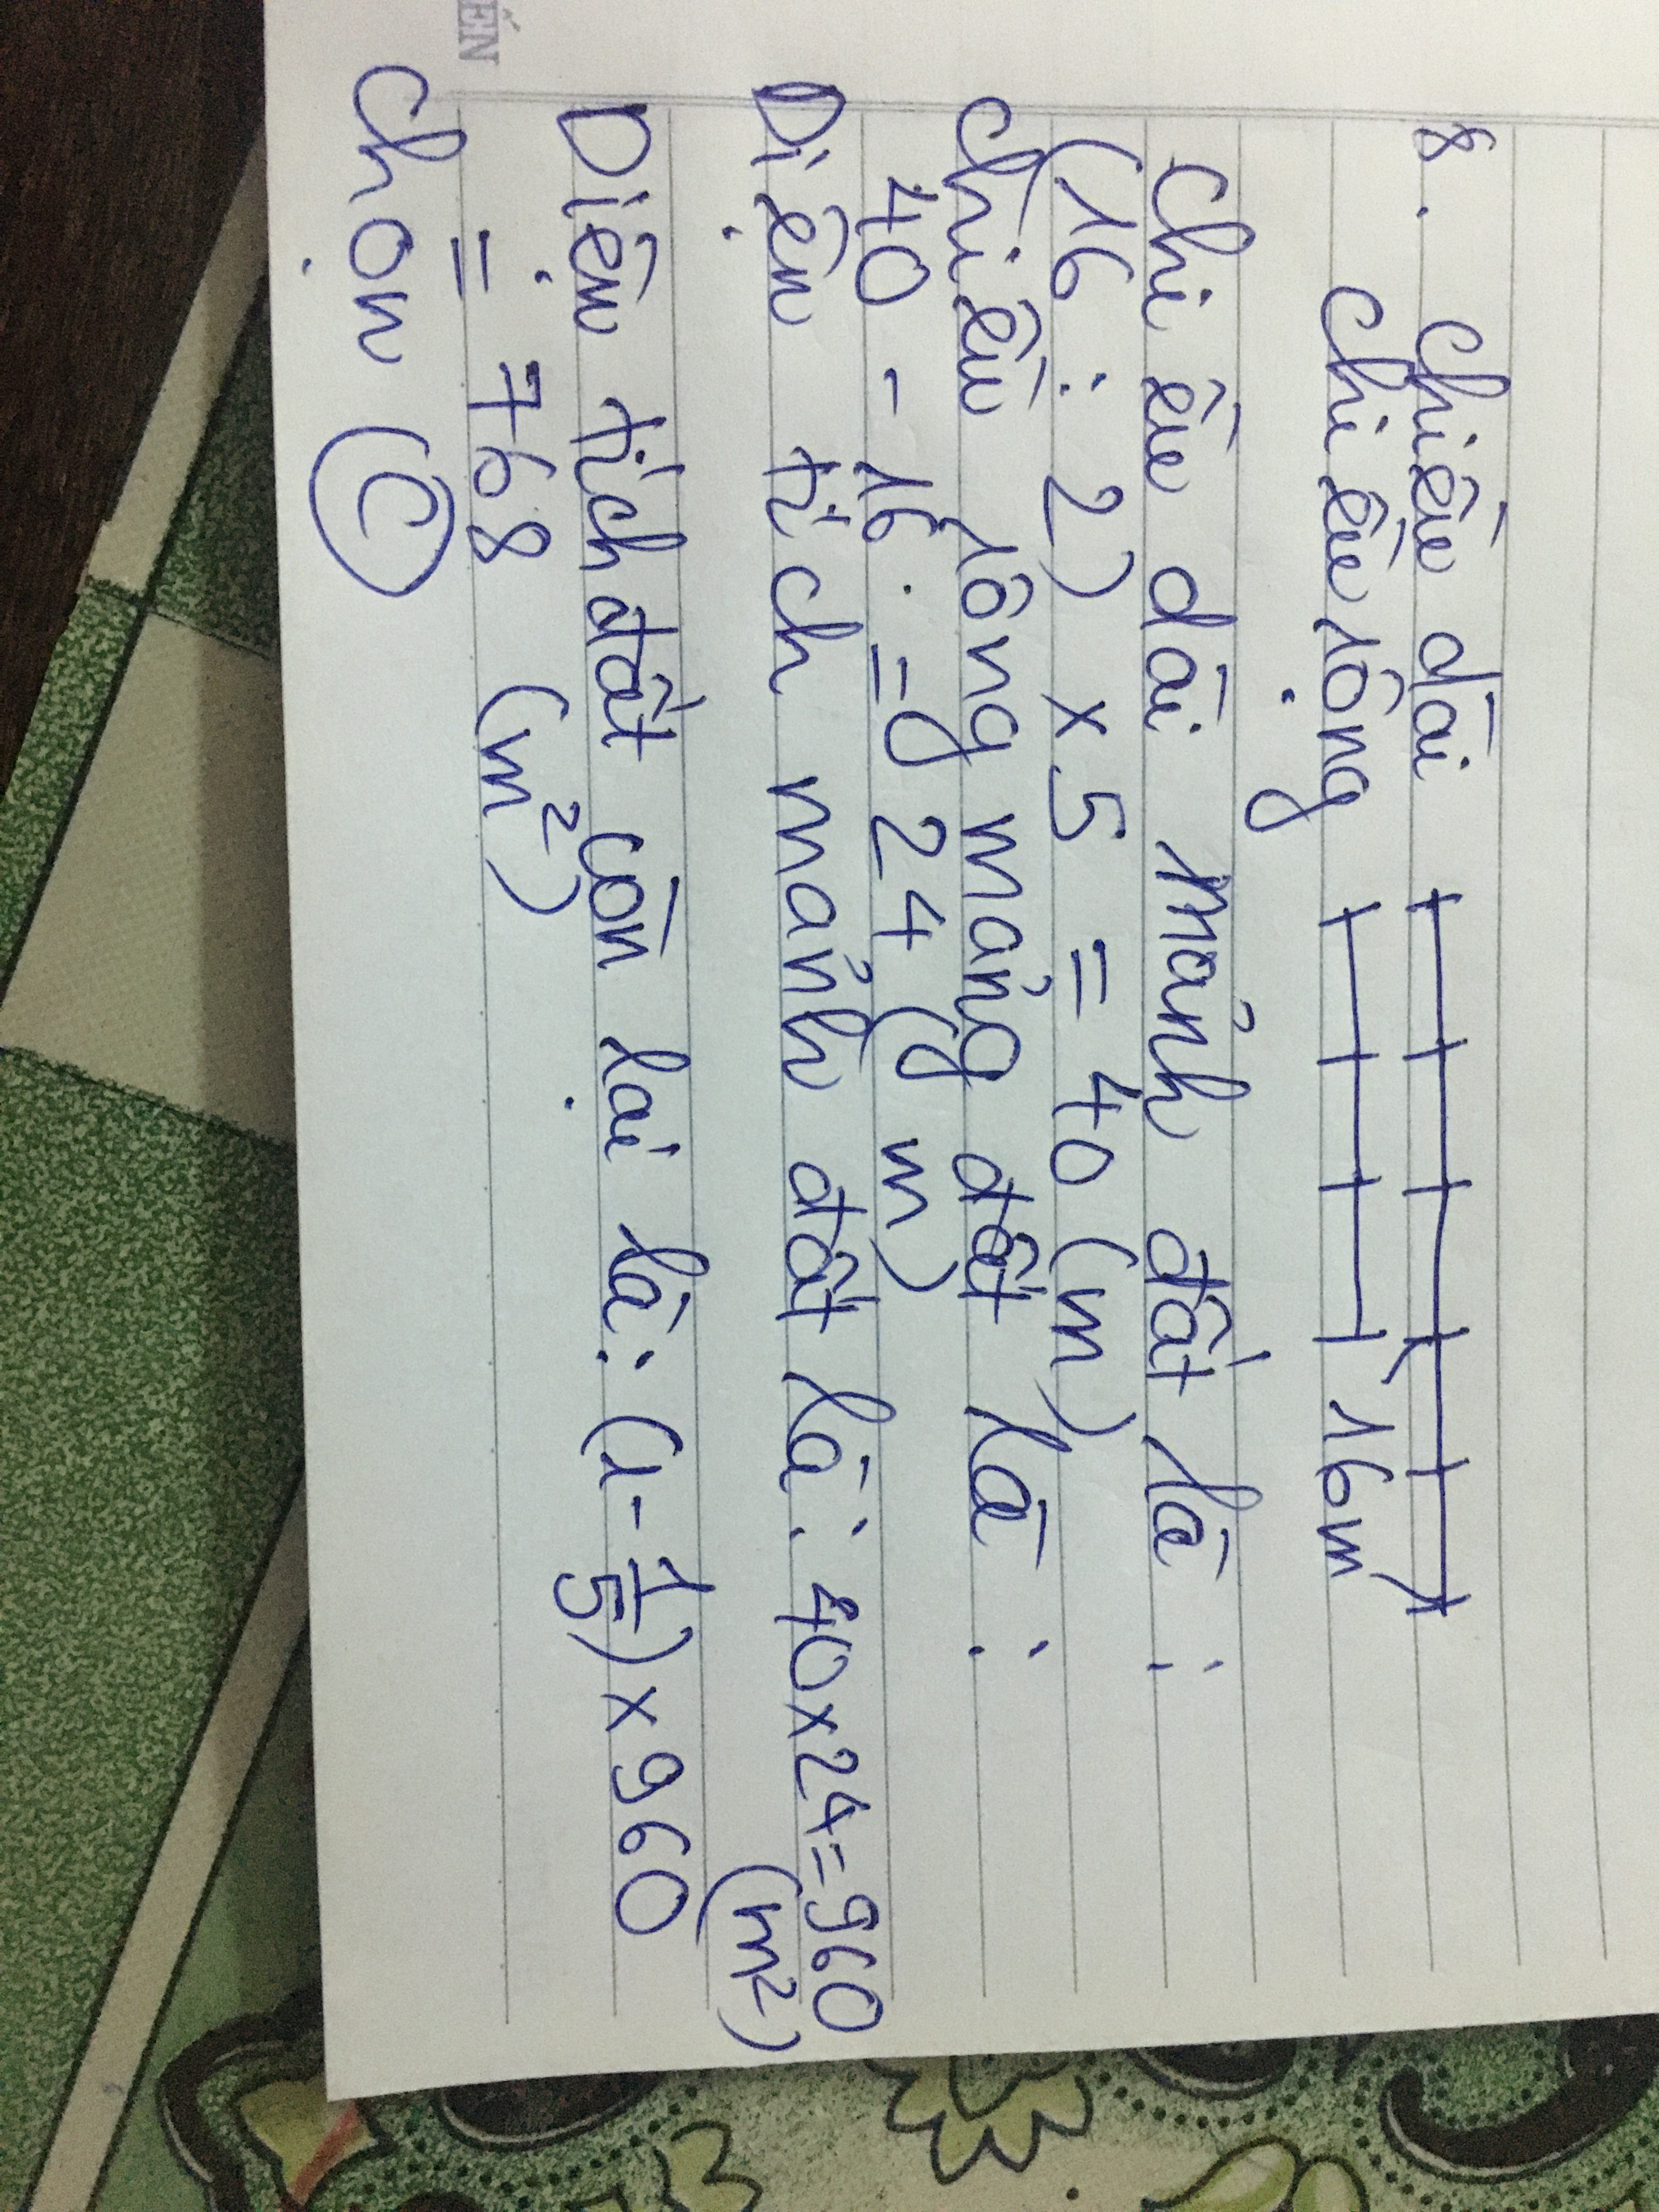 8. Chiều dài
Chiều rộng 16m
Chiều dài mảnh đất là:
(16 : 2) x 5 = 40 (m)
Chiều rông mảng đất là:
40 - 16 = 24 (m)
Diện tích mảnh đất là: 40x24=960
(m²)
Diện tích đất còn lại là: (1-1/5) x 960
= 768 (m²)
Chọn C
ẾN